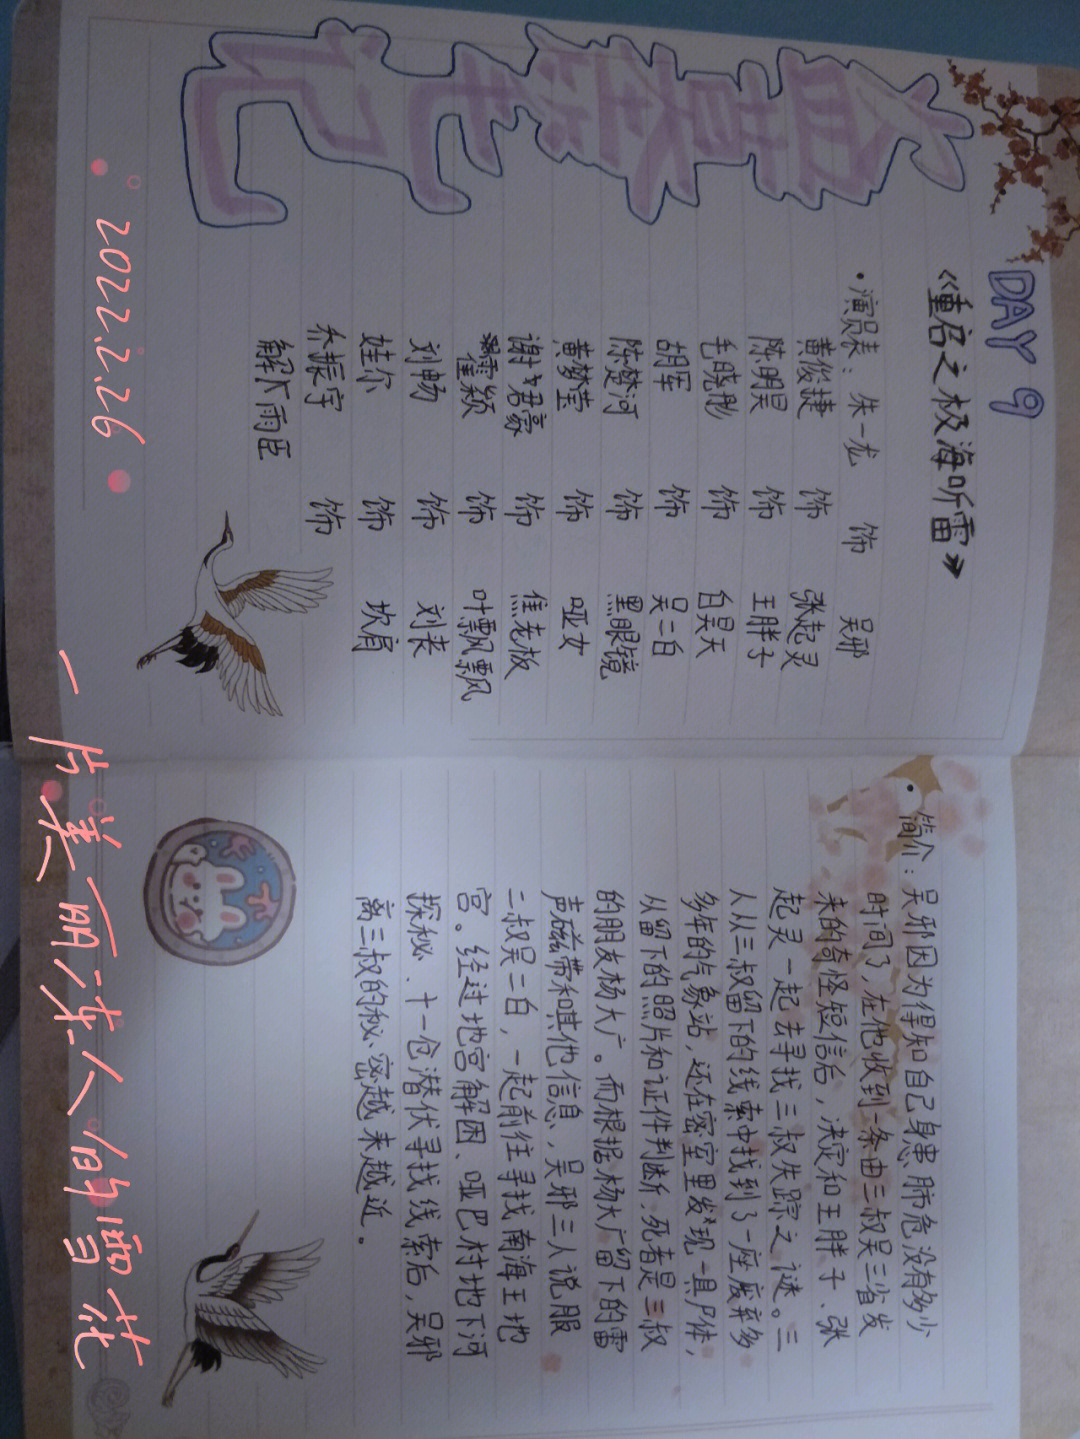 盗墓笔记
DAY 9
《重启之极海听雷》
·演员表：朱一龙 饰 吴邪
黄俊捷 饰 张起灵
陈明昊 饰 王胖子
毛晓彤 饰 白昊天
胡军 饰 吴二白
陈楚河 饰 黑眼镜
黄梦莹 饰 哑女
谢君豪 饰 焦老板
霍颖 饰 叶飘飘
刘畅 饰 刘丧
娃尔 饰 坎肩
乔振宇 饰
解雨臣
2022.2.26
简介：吴邪因为得知自己身患肺危没有多少
时间了，在他收到一条由三叔吴三省发
来的奇怪短信后，决定和王胖子、张
起灵一起去寻找三叔失踪之谜。三
人从三叔留下的线索中找到了一座废弃多
多年的气象站，还在密室里发现一具尸体，
从留下的照片和证件判断，死者是三叔
的朋友杨大广。而根据杨大广留下的雷
声磁带和其他信息，吴邪三人说服
二叔吴二白，一起前往寻找南海王地
宫。经过地宫解困、哑巴村地下河
探秘、十一仓潜伏寻找线索后，吴邪
离三叔的秘密越来越近。
一片美丽冻人的雪花